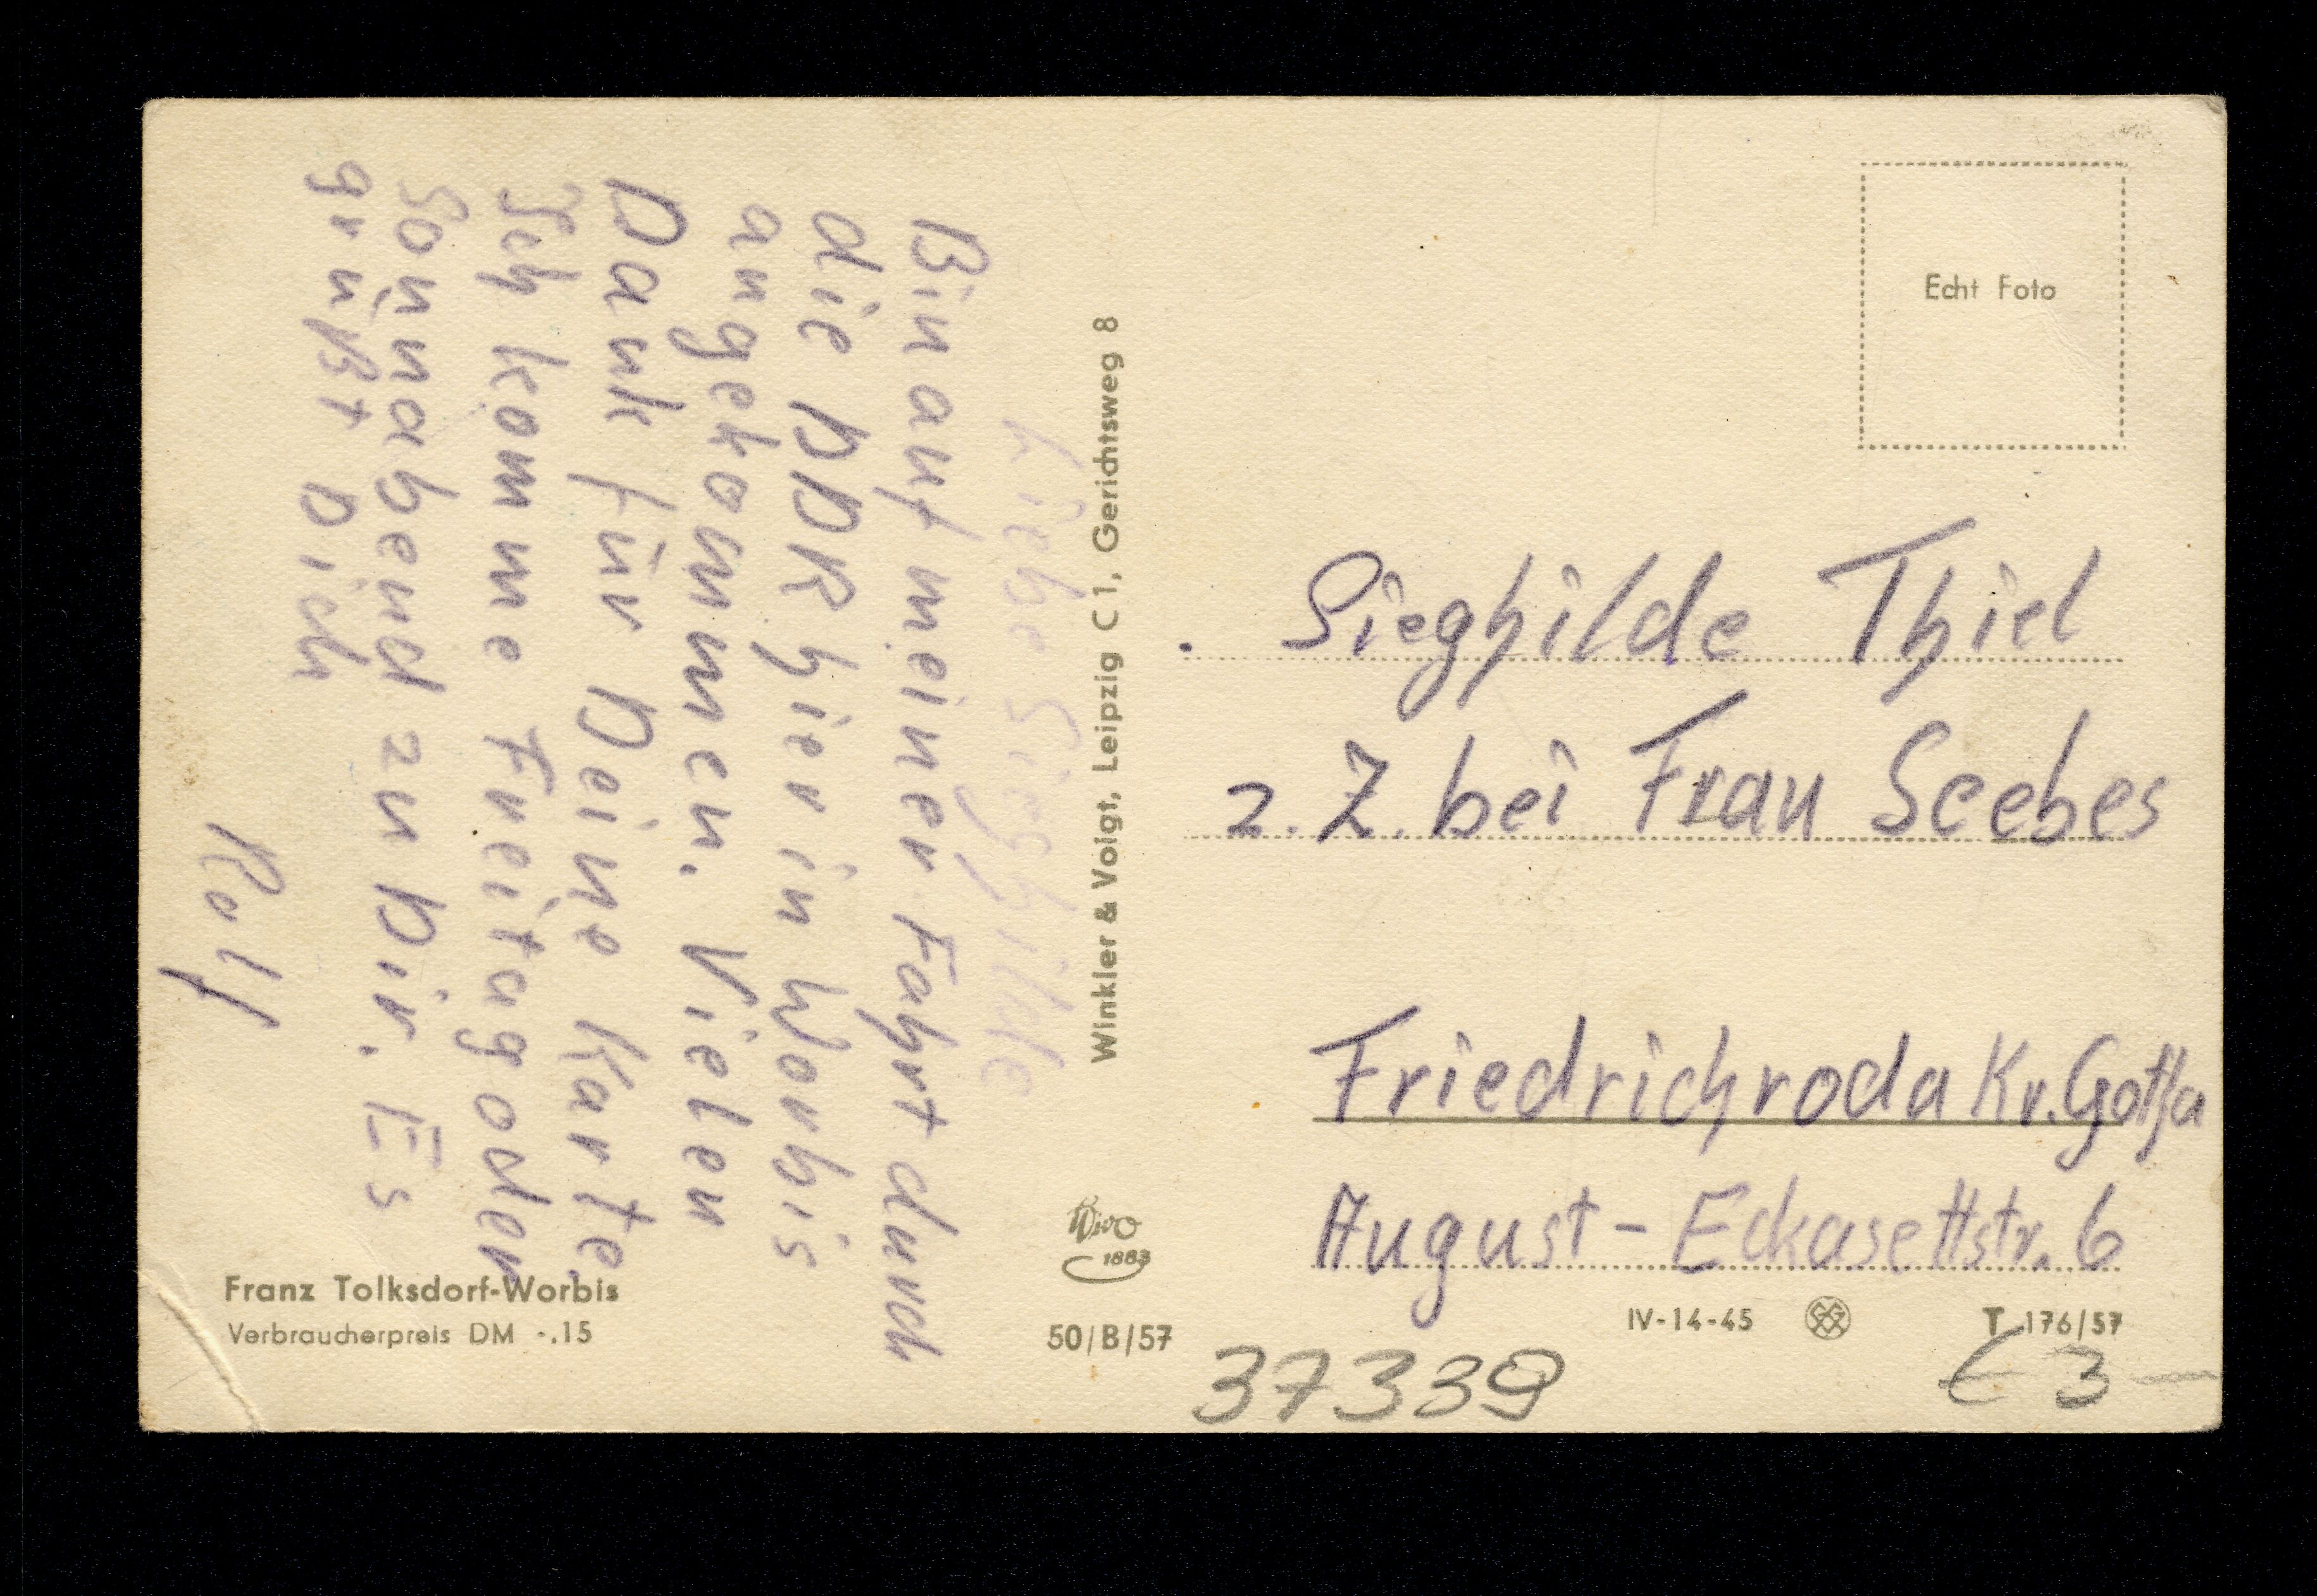 Liebe Sieghilde
Bin auf meiner Fahrt durch
die DDR hier in Worbis
angekommen. Vielen
Dank für Deine Karte.
Ich komme Freitag oder
Sonnabend zu Dir. Es
grüßt Dich
Rolf
Franz Tolksdorf-Worbis
Verbraucherpreis DM -.15
Winkler & Voigt, Leipzig C 1, Gerichtsweg 8
Wivo
1883
50/B/57
Echt Foto
Sieghilde Thiel
z. Z. bei Frau Seebes
Friedrichroda Kr. Gotha
August-Eckasettstr. 6
IV-14-45
T 176/57
37339
€ 3 —